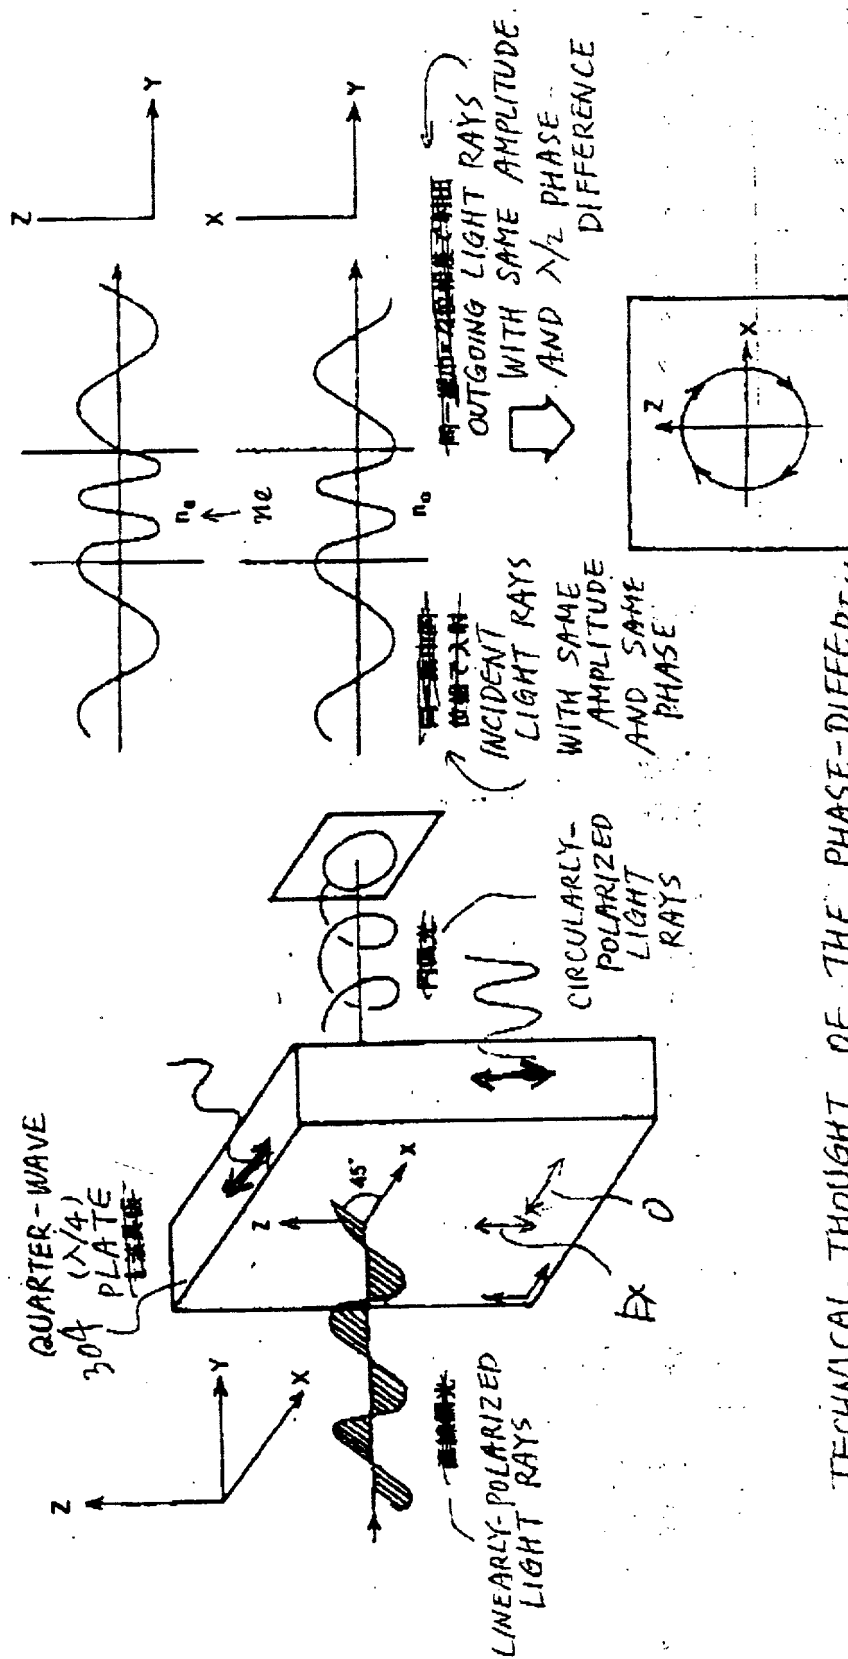 QUARTER-WAVE
304 (λ/4)
PLATE
Z
Y
X
LINEARLY-POLARIZED
LIGHT RAYS
直線偏光
Z
45°
X
EX
O
円偏光
CIRCULARLY-
POLARIZED
LIGHT
RAYS
nₑ
ne
Z
Y
nₒ
X
Y
位相で入射
INCIDENT
LIGHT RAYS
WITH SAME
AMPLITUDE
AND SAME
PHASE
OUTGOING LIGHT RAYS
WITH SAME AMPLITUDE
AND λ/2 PHASE
DIFFERENCE
Z
X
TECHNICAL THOUGHT OF THE PHASE-DIFFEREN